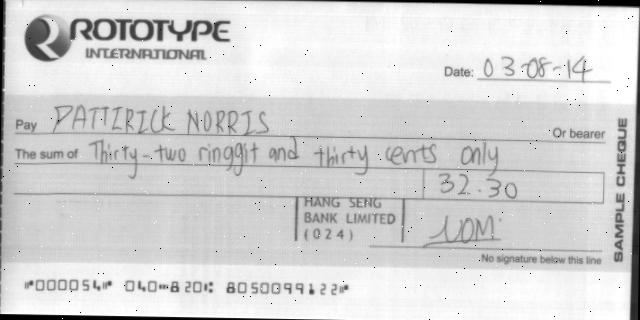 ROTOTYPE
INTERNATIONAL
Date: 03-08-14
Pay PATTERICK NORRIS Or bearer
The sum of Thirty-two ringgit and thirty cents only
32.30
HANG SENG
BANK LIMITED
(024)
No signature below this line
SAMPLE CHEQUE
"000054" 040 820 8050099122"